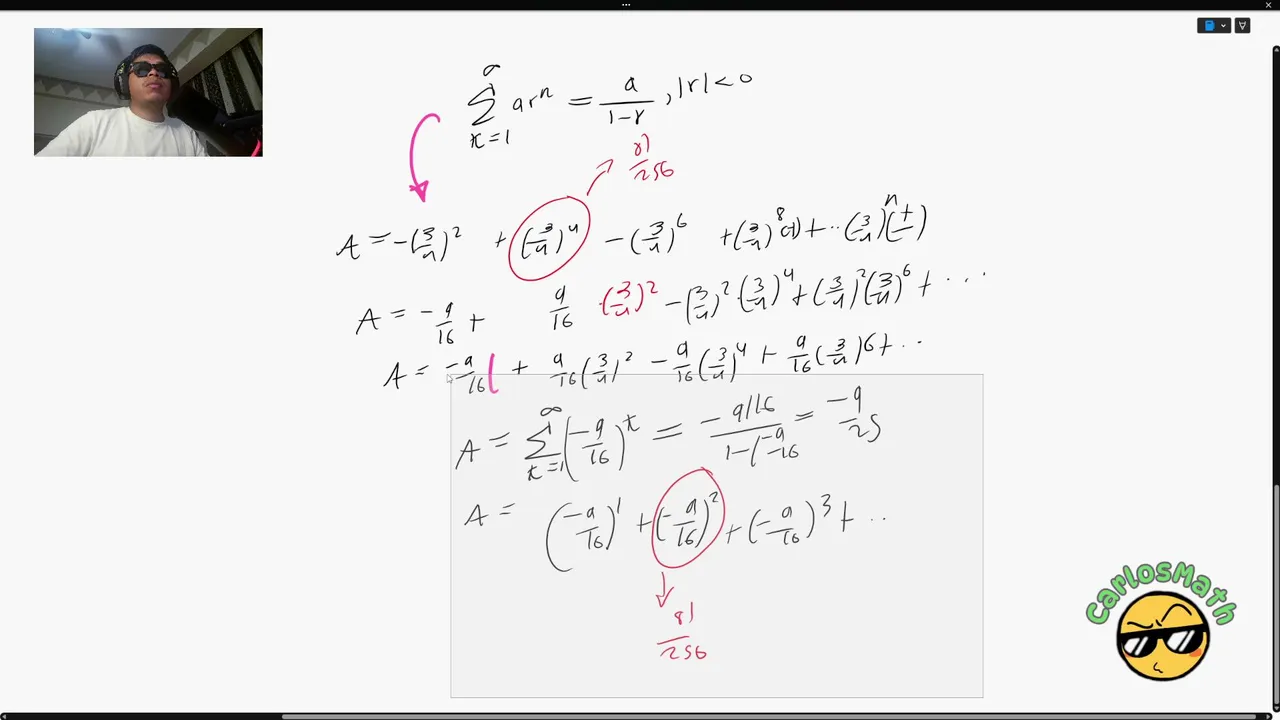 ∞
∑ arⁿ = a/(1-r), |r| < 0
k=1
81/256
A = -(3/4)² + (3/4)⁴ - (3/4)⁶ + (3/4)⁸(1) + ·· (3/4)ⁿ(+/-)
A = -9/16 + 9/16 ·(3/4)² - (3/4)²·(3/4)⁴ + (3/4)²(3/4)⁶ + ···
A = -9/16 ( + 9/16(3/4)² - 9/16(3/4)⁴ + 9/16(3/4)⁶ + ··
A = ∑ k=1 ∞ (-9/16)ᵏ = -9/16 / 1-(-9/-16 = -9/25
A = (-9/16)¹ + (-9/16)² + (-9/16)³ + ··
81/256
CarlosMath